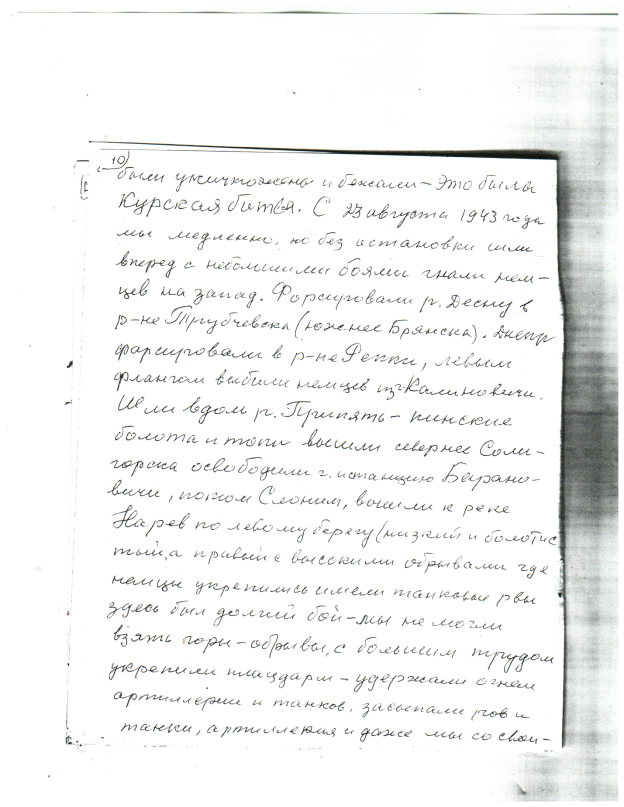 10)
были уничтожены и бежали – это была
Курская битва. С 23 августа 1943 года
мы медленно, но без остановки шли
вперед с небольшими боями гнали нем-
цев на запад. Форсировали р. Десну в
р-не Трубчевска (южнее Брянска). Днепр
форсировали в р-не Репки, левым
флангом выбили немцев из г. Калинковичи.
Шли вдоль р. Припять – пинские
болота и топи вышли севернее Соли-
горска освободили г. и станцию Барано-
вичи, потом Слоним, вышли к реке
Нарев по левому берегу (низкий и болотис
тый, а правый с высокими обрывами где
немцы укрепились имели танковые рвы
здесь был долгий бой – мы не могли
взять горы – обрывы, с большим трудом
укрепили плацдарм – удержали огнем
артиллерии и танков. засыпали ров и
танки, артиллерия и даже мы со свои-